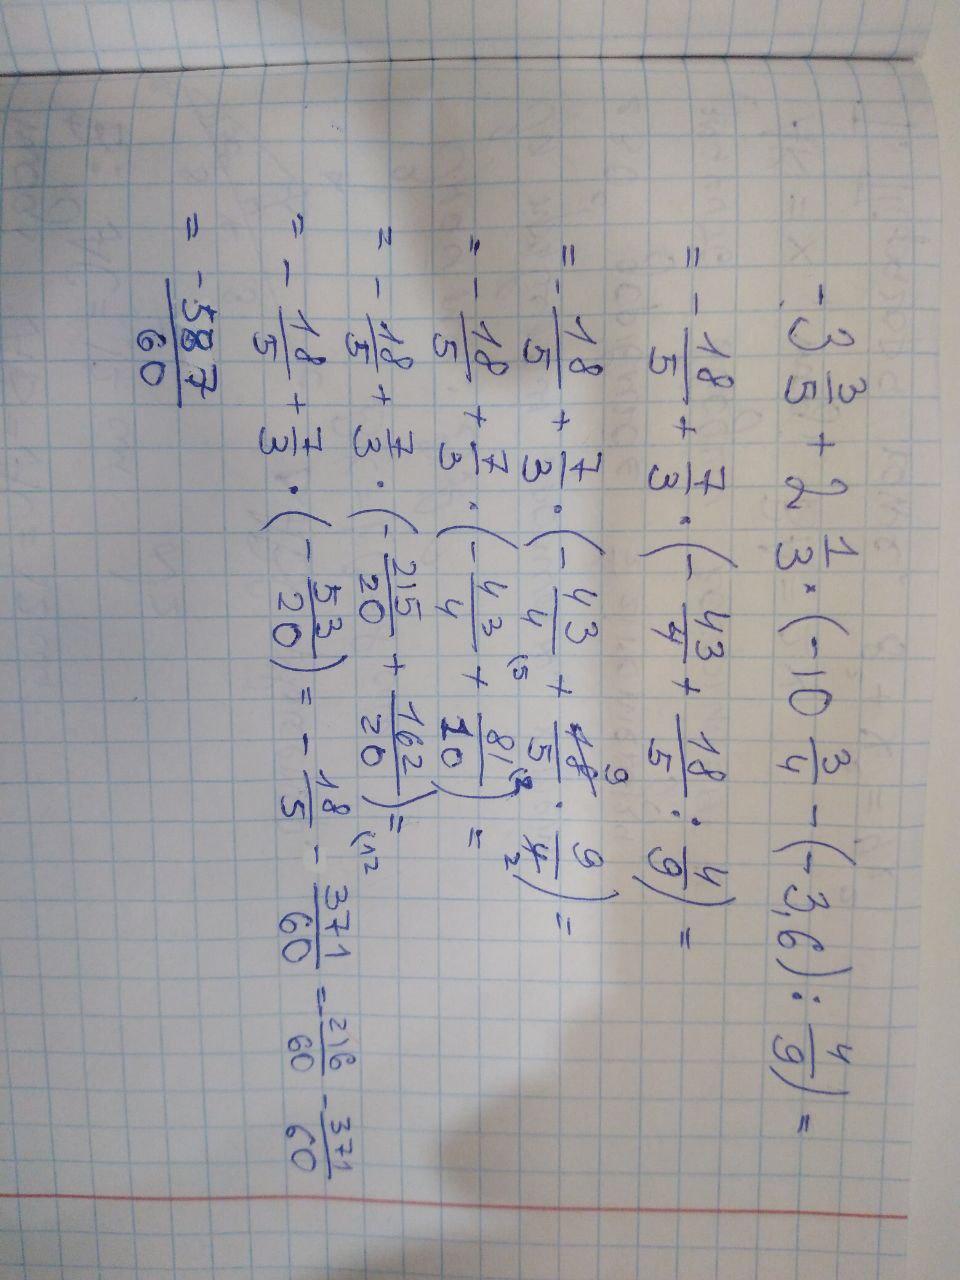 -3 3/5 + 2 1/3 · (-10 3/4 - (-3,6) : 4/9) =
= - 18/5 + 7/3 · (- 43/4 + 18/5 : 4/9) =
= - 18/5 + 7/3 · (- 43/4 + 18/5 · 9/4) = 9 2
= - 18/5 + 7/3 · (- 43/4 (5 + 81/10 (2) =
= - 18/5 + 7/3 · (- 215/20 + 162/20) =
= - 18/5 + 7/3 · (- 53/20) = - 18/5 (12 - 371/60 = - 216/60 - 371/60
= - 587/60